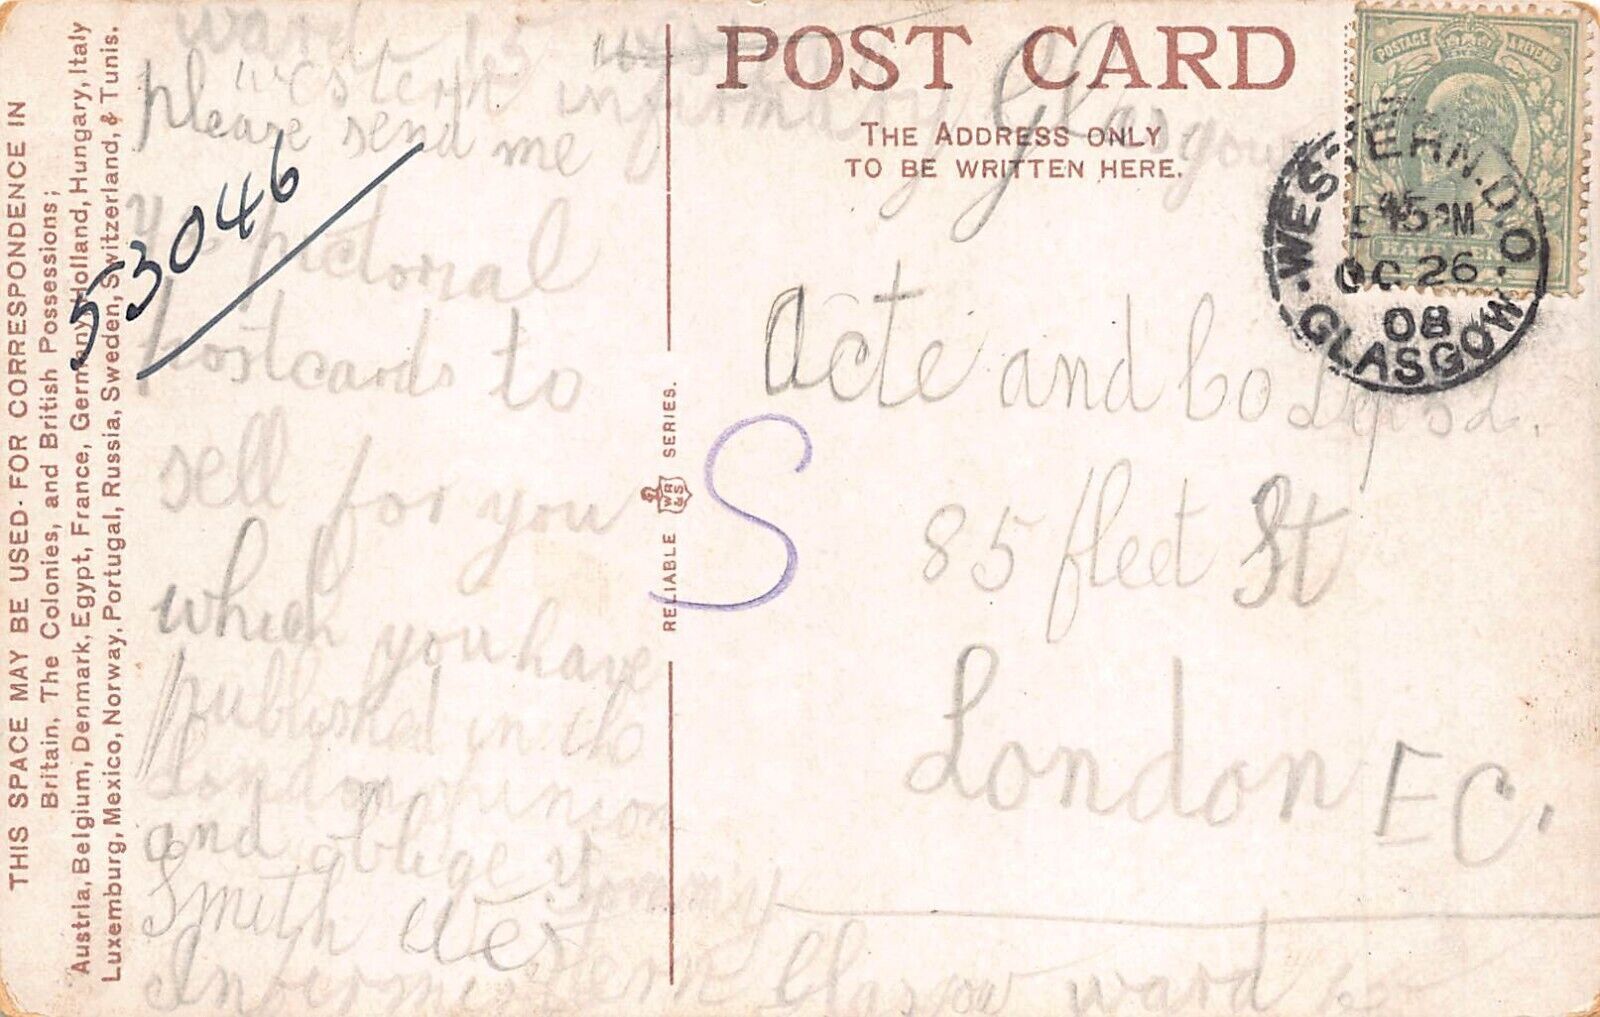 THIS SPACE MAY BE USED FOR CORRESPONDENCE IN
Britain, The Colonies, and British Possessions;
Austria, Belgium, Denmark, Egypt, France, Germany, Holland, Hungary, Italy
Luxemburg, Mexico, Norway, Portugal, Russia, Sweden, Switzerland, & Tunis.
ward 15
western infirmary Glasgow
please send me
pictorial
postcards to
sell for you
which you have
published in the
London
and oblige Tommy
Smith Wes
tern Glasgow ward
53046
RELIABLE WR&S SERIES.
POST CARD
THE ADDRESS ONLY
TO BE WRITTEN HERE.
POSTAGE & REVENUE
HALFPENNY
WESTERN.D.O.
45 PM
OC 26
08
GLASGOW
S
acte and Co
85 fleet St
London E C.